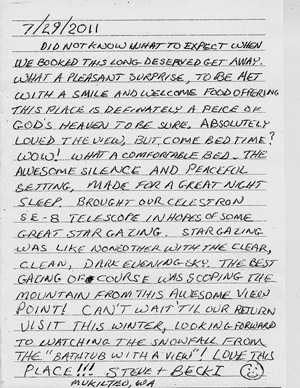 7/29/2011
DID NOT KNOW WHAT TO EXPECT WHEN
WE BOOKED THIS LONG DESERVED GET AWAY.
WHAT A PLEASANT SURPRISE, TO BE MET
WITH A SMILE AND WELCOME FOOD OFFERING
THIS PLACE IS DEFINATELY A PEICE OF
GOD'S HEAVEN TO BE SURE. ABSOLUTELY
LOVED THE VIEW, BUT, COME BEDTIME?
WOW! WHAT A COMFORTABLE BED. THE
AWESOME SILENCE AND PEACEFUL
SETTING, MADE FOR A GREAT NIGHT
SLEEP. BROUGHT OUR CELESTRON
SE-8 TELESCOPE IN HOPES OF SOME
GREAT STAR GAZING. STARGAZING
WAS LIKE NONE OTHER WITH THE CLEAR,
CLEAN, DARK EVENING SKY. THE BEST
GAZING OF COURSE WAS SCOPING THE
MOUNTAIN FROM THIS AWESOME VIEW
POINT! CAN'T WAIT 'TIL OUR RETURN
VISIT THIS WINTER, LOOKING FORWARD
TO WATCHING THE SNOWFALL FROM
THE "BATHTUB WITH A VIEW"! LOVE THIS
PLACE!!! STEVE + BECKI
MUKILTEO, WA